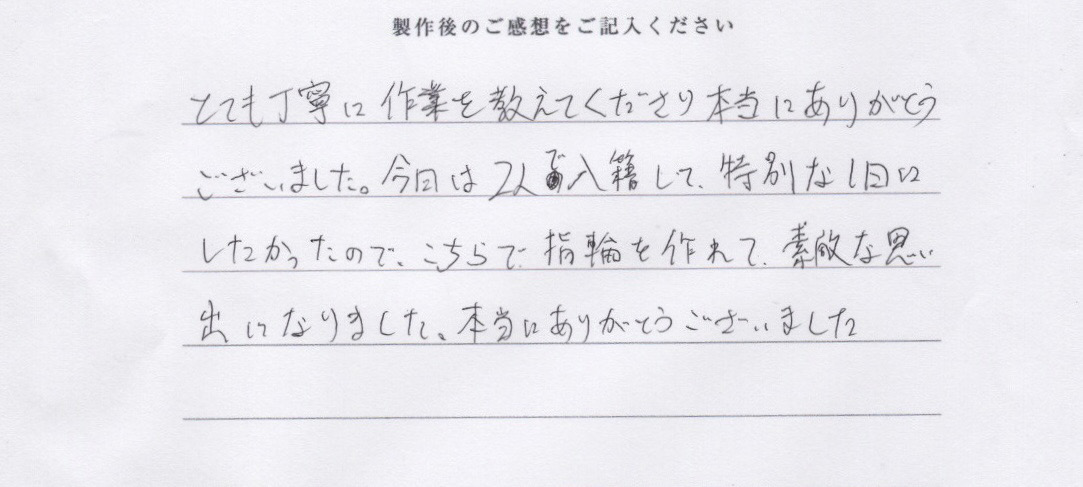 製作後のご感想をご記入ください
とても丁寧に作業を教えてくださり本当にありがとう
ございました。今日は2人で入籍して、特別な1日に
したかったので、こちらで指輪を作れて、素敵な思い
出になりました。本当にありがとうございました